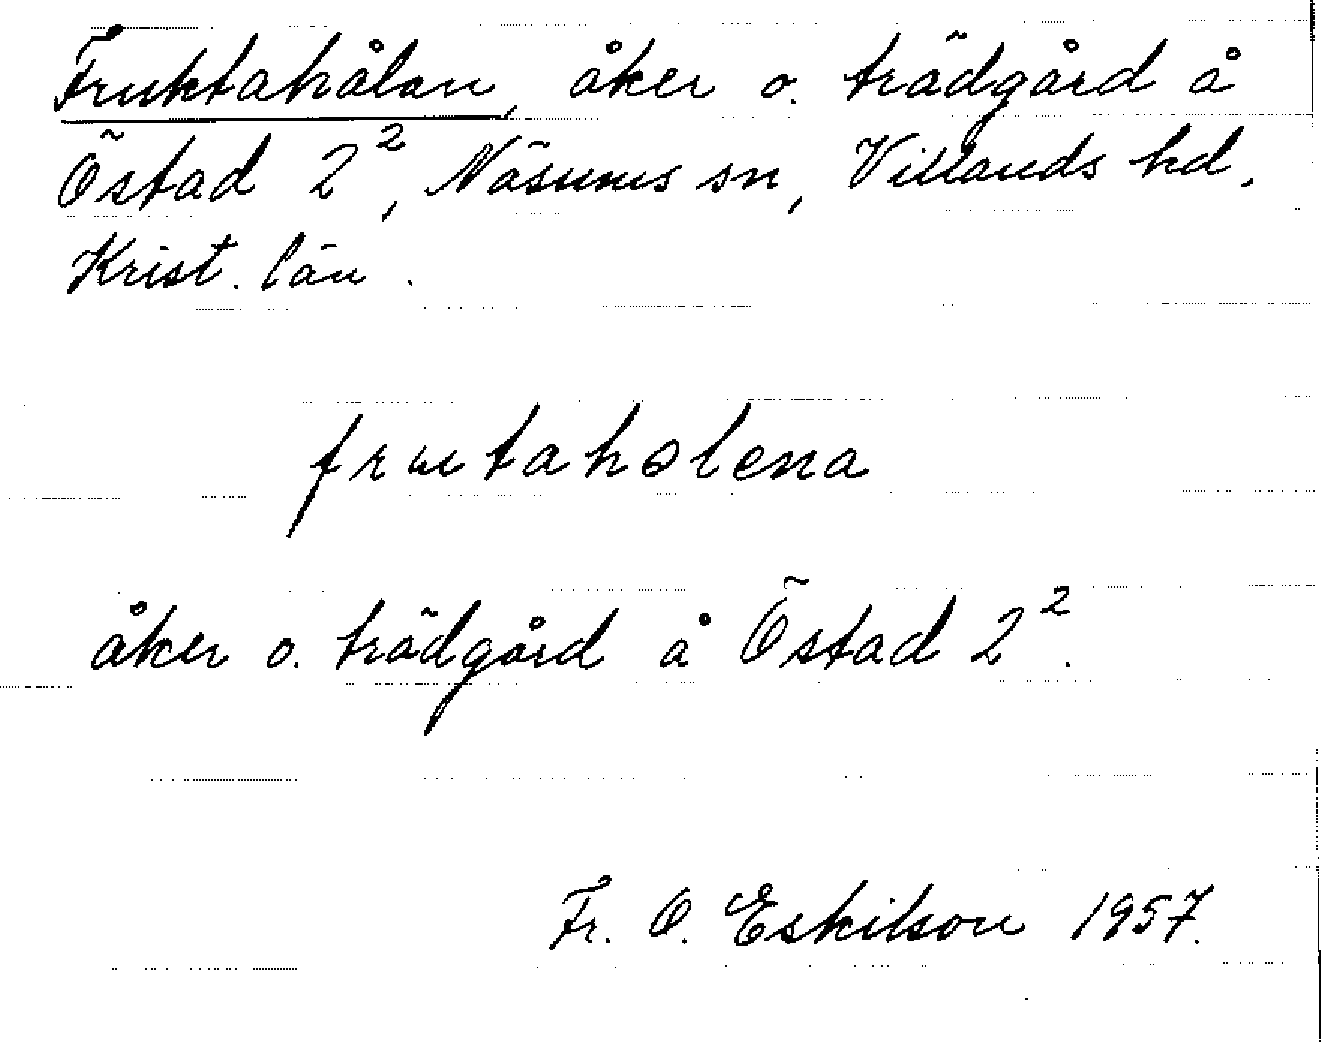 Fruktahålan, åker o. trädgård å
Östad 2², Näsums sn, Villands hd,
Krist. län.
åker o. trädgård å Östad 2².
Fr. O. Eskilson 1957.